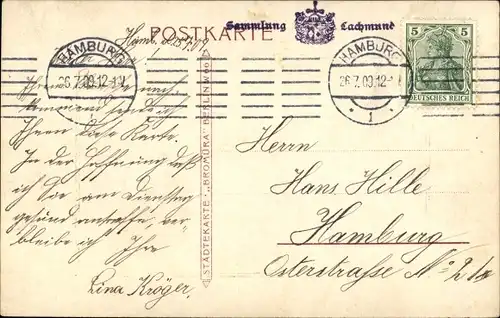 POSTKARTE
Sammlung Lachmund
Hamb. d.
HAMBURG
26.7.09.12-1N
HAMBURG
26.7.09.12-1N
1
5 5
DEUTSCHES REICH
Ihrem
sende ich
Ihnen diese Karte.
In der Hoffnung daß
ich Sie am Dienstag
gesund antreffe, ver-
bleibe ich Ihre
Lina Kröger.
STÄDTEKARTE "BROMÜRA" BERLIN
Herrn
Hans Hille
Hamburg
Osterstrasse No 2